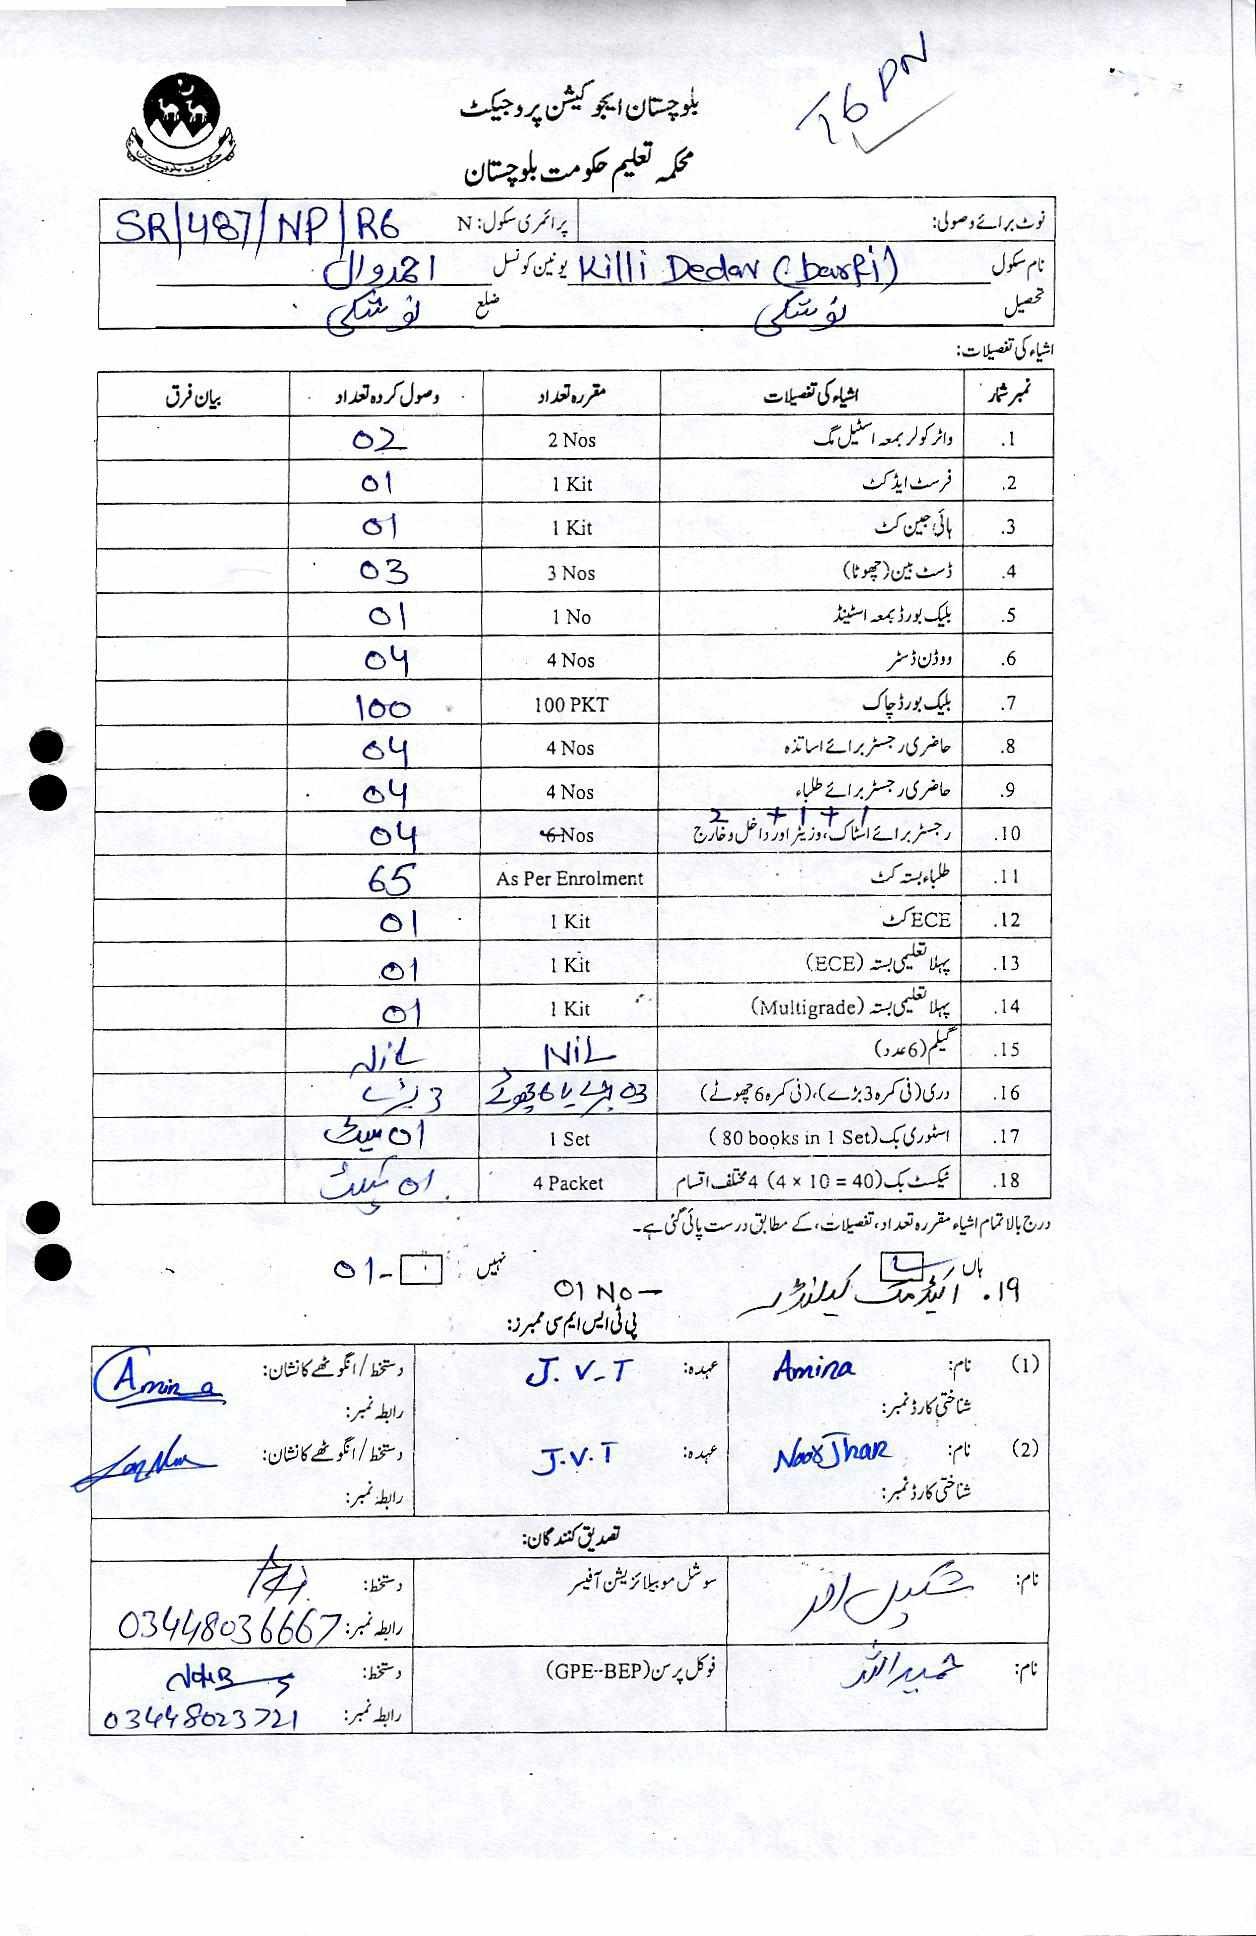 16 PN
بلوچستان ایجوکیشن پروجیکٹ
محکمہ تعلیم حکومت بلوچستان
نوٹ برائے وصولی: پرائمری سکول: N SR/487/NP/R6
نام سکول Killi Dedar یونین کونسل احمدوال
تحصیل نوشکی ضلع نوشکی
اشیاء کی تفصیلات:
نمبر شمار اشیاء کی تفصیلات مقررہ تعداد وصول کردہ تعداد بیان فرق
1. واٹر کولر بمعہ اسٹیل مگ 2 Nos 02
2. فرسٹ ایڈ کٹ 1 Kit 01
3. ہائی جین کٹ 1 Kit 01
4. ڈسٹ بین (چھوٹا) 3 Nos 03
5. بلیک بورڈ بمعہ اسٹینڈ 1 No 01
6. ووڈن ڈسٹر 4 Nos 04
7. بلیک بورڈ چاک 100 PKT 100
8. حاضری رجسٹر برائے اساتذہ 4 Nos 04
9. حاضری رجسٹر برائے طلباء 4 Nos 04
2 + 1 + 1
10. رجسٹر برائے اسٹاک، وزیٹر اور داخل و خارج 6 Nos 04
11. طلباء بستہ کٹ As Per Enrolment 65
12. ECE کٹ 1 Kit 01
13. پہلا تعلیمی بستہ (ECE) 1 Kit 01
14. پہلا تعلیمی بستہ (Multigrade) 1 Kit 01
15. گیلم (6 عدد) NiL NiL
16. دری (فی کمرہ 3 بڑے)، (فی کمرہ 6 چھوٹے) 03 بڑے یا 6 چھوٹے 3 بڑے
17. اسٹوری بک (80 books in 1 Set) 1 Set 01 سیٹ
18. ٹیکسٹ بک (4 × 10 = 40) 4 مختلف اقسام 4 Packet 01
درج بالا تمام اشیاء مقررہ تعداد، تفصیلات، کے مطابق درست پائی گئی ہے۔
ہاں نہیں 01-
19. اکیڈمک کیلنڈر 01 No -
پی ٹی ایس ایم سی ممبرز:
(1) نام: Amina عہدہ: J.V.T دستخط/انگوٹھے کا نشان: Amina
شناختی کارڈ نمبر: رابطہ نمبر:
(2) نام: Noor Jhan عہدہ: J.V.T دستخط/انگوٹھے کا نشان:
شناختی کارڈ نمبر: رابطہ نمبر:
تصدیق کنندگان:
نام: شکیل احمد سوشل موبیلائزیشن آفیسر دستخط:
رابطہ نمبر: 03448036667
نام: حمید اللہ فوکل پرسن (GPE--BEP) دستخط:
رابطہ نمبر: 03448023721